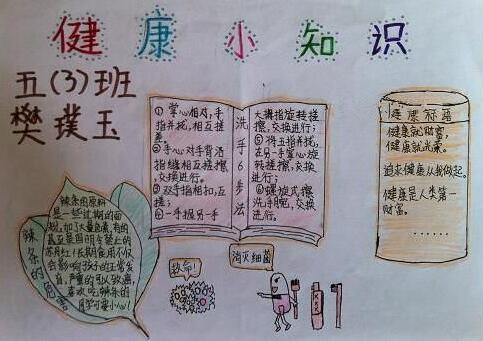 健康小知识
五(3)班
樊璞玉
洗手6步法
①掌心相对,手
指并拢,相互搓
擦
②手心对手背沿
指缝相互搓擦,
交换进行。
③双手指相扣,互
搓;
④一手握另一手
大拇指旋转搓
擦,交换进行;
⑤将五指并拢,
在另一手掌心旋
转搓擦,交换
进行;
⑥螺旋式擦
洗手腕,交换
进行。
健康标语
健康就财富,
健康就光荣。
追求健康从我做起。
健康是人类第一
财富。
……
辣条的危害
辣条的原料
是一些过期的面
粉,加了大量色素,有的
甚至是国明令禁止的
苏丹红!长期食用不仅
会影响孩子的正常发
育,严重的可以致癌,
喜欢吃辣条的
同学可要小心!
救命!
消灭细菌